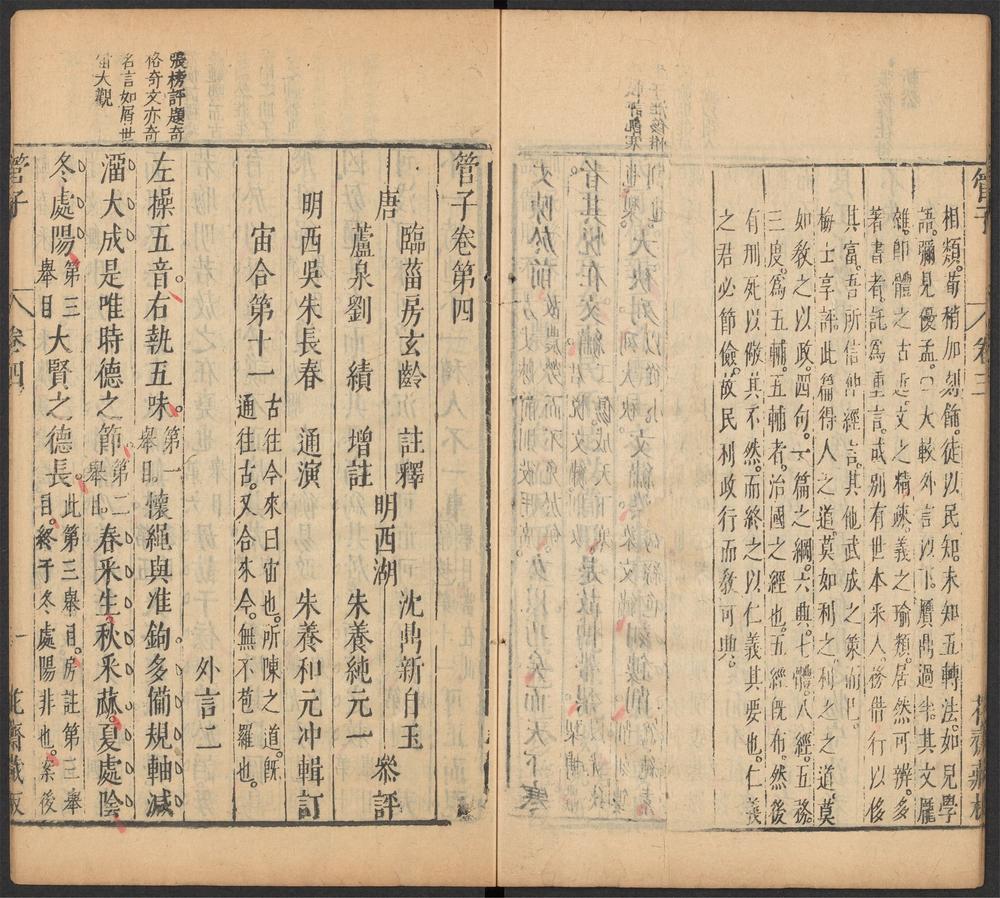 管子 卷三
相類。荀稍加刻飾。徒以民知。未知五轉法。如見學
語。彌見優孟。〇大較外言以下。贋鼎過半。其文厖
雜。卽體之古近。文之精疎。義之瑜類。居然可辨。多
著書者。託爲重言。或別有世本來人。後借行以侈
其富。吾所信仲經言。其他武成之策而已。
梅士享評此篇得人之道。莫如利之。利之之道。莫
如敎之以政。四句。一篇之綱。六典。七體。八經。五務。
三度。爲五輔。五輔者。治國之經也。五經旣布。然後
有刑死以儆其不然。而終之以仁義其要也。仁義
之君必節儉。故民利政行而敎可典。
管子卷第四
唐 臨菑房玄齡 註釋
蘆泉劉 績 增註
明西吳朱長春 通演
明西湖 沈鼎新自玉
朱養純元一 參評
朱養和元冲 輯訂
宙合第十一
古往今來曰宙也。所陳之道。旣
通往古。又合來今。無不苞羅也。
外言二
張榜評題奇
俗奇文亦奇
名言如屑世
宙大觀
左操五音。右執五味。第一舉目。懷繩與准鉤。多備規軸。減
溜大成。是唯時德之節。第二舉目。春采生。秋采蓏。夏處陰。
冬處陽。第三舉目大賢之德長。此第三舉目。房註第三舉
目。終于冬處陽非也。案後
管子 卷四 一 花齋藏板